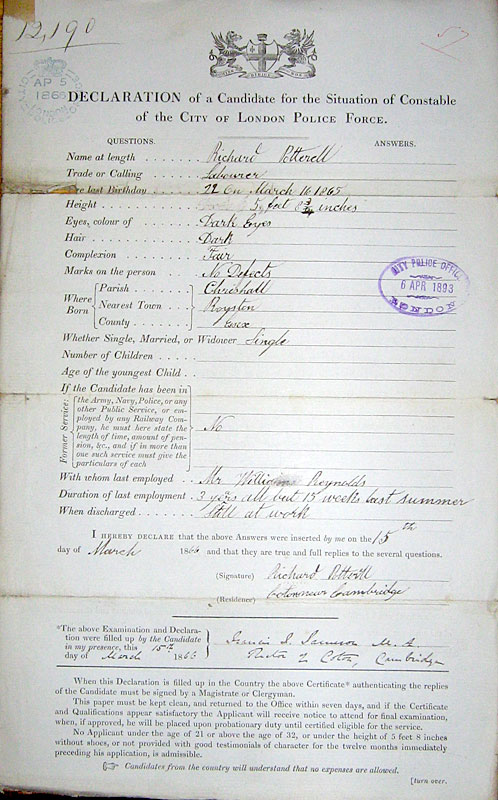 12,190
AP 5
186
DECLARATION of a Candidate for the Situation of Constable
of the CITY OF LONDON POLICE FORCE.
QUESTIONS. ANSWERS.
Name at length . . . . . . Richard Potterell
Trade or Calling . . . . . . Labourer
Age last Birthday . . . . . 22 On March 16 1865
Height . . . . . . . . 5 feet 8 3/4 inches
Eyes, colour of . . . . . . Dark Eyes
Hair . . . . . . . . . Dark
Complexion . . . . . . . Fair
Marks on the person . . . . No Defects
Where Born { Parish . . . . . Chrishall
Nearest Town . . . Royston
County . . . . . . Essex
Whether Single, Married, or Widower Single
Number of Children . . . .
Age of the youngest Child . . .
If the Candidate has been in
Former Service: { the Army, Navy, Police, or any
other Public Service, or em-
ployed by any Railway Com-
pany, he must here state the No
length of time, amount of pen-
sion, &c., and if in more than
one such service must give the
particulars of each
With whom last employed . . Mr Williams Reynolds
Duration of last employment . 3 years all but 15 weeks last summer
When discharged . . . . . Still at work
CITY POLICE OFFICE
6 APR 1893
LONDON
I HEREBY DECLARE that the above Answers were inserted by me on the 15th
day of March 1866 and that they are true and full replies to the several questions.
(Signature) Richard Potterill
(Residence) Cambridge
*The above Examination and Declara-
tion were filled up by the Candidate
in my presence, this 15th
day of March 1866
Francis M. A.
Rector of Coton, Cambridge
When this Declaration is filled up in the Country the above Certificate* authenticating the replies
of the Candidate must be signed by a Magistrate or Clergyman.
This paper must be kept clean, and returned to the Office within seven days, and if the Certificate
and Qualifications appear satisfactory the Applicant will receive notice to attend for final examination,
when, if approved, he will be placed upon probationary duty until certified eligible for the service.
No Applicant under the age of 21 or above the age of 32, or under the height of 5 feet 8 inches
without shoes, or not provided with good testimonials of character for the twelve months immediately
preceding his application, is admissible.
☞ Candidates from the country will understand that no expenses are allowed.
[turn over.